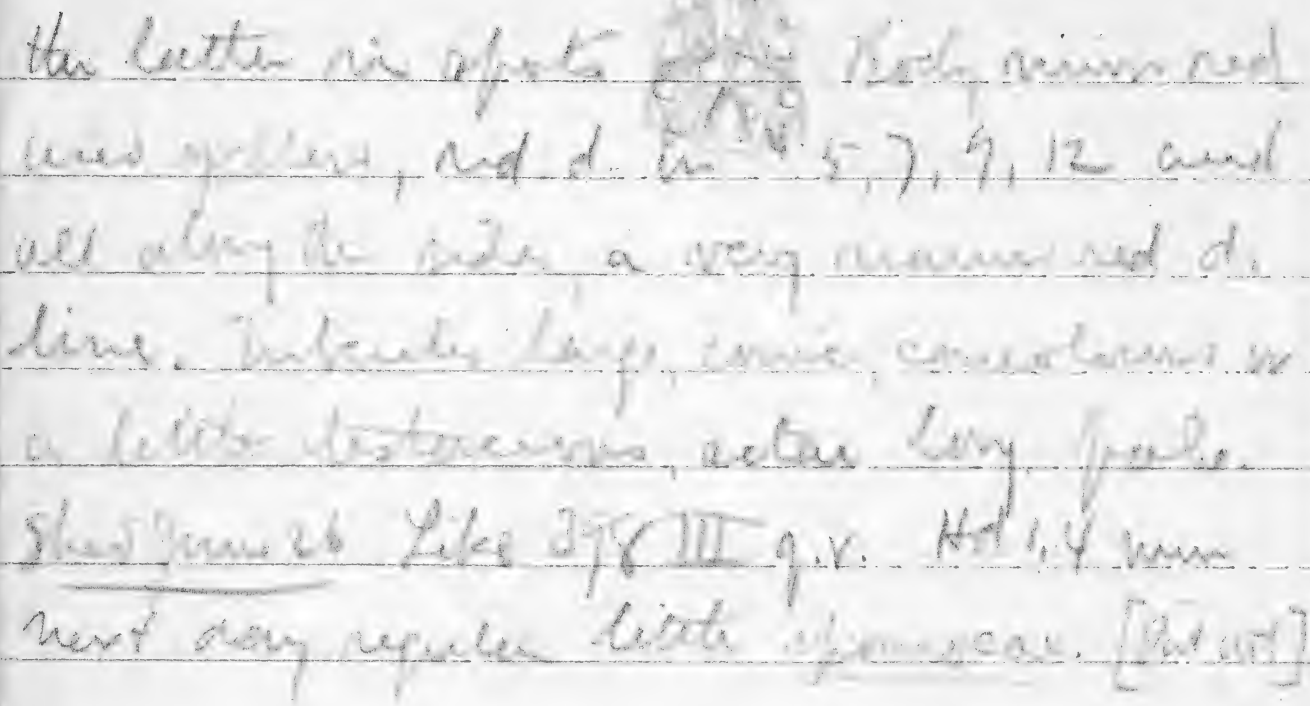 the latter in spots Body minus red
and yellow, red d. in 5, 7, 9, 12 and
all along the sides a very narrow red d.
line. Tubercles large, conic, concolorous
a little setae long, pale.
Shed June 26 Like 398 III q.v. Hd 1.4 mm
next day regular little